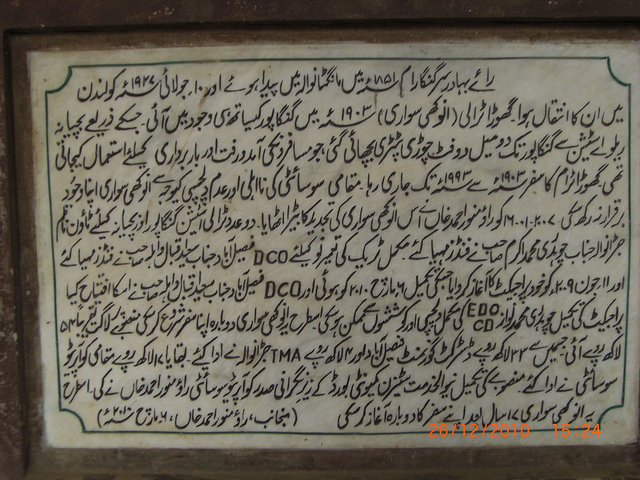 رائے بہادر سر گنگا رام ۱۸۵۱ئہ میں مانگٹانوالہ میں پیدا ہوئے اور ۱۰ جولائی ۱۹۲۷ئہ کو لندن
میں ان کا انتقال ہوا۔ گھوڑا ٹرالی (انوکھی سواری) ۱۹۰۳ئہ میں گنگا پور کیساتھ ہی وجود میں آئی۔ جسکے ذریعے بچیانہ
ریلوے اسٹیشن سے گنگا پور تک دو میل دو فٹ چوڑی پٹڑی بچھائی گئی جو مسافروں کی آمدورفت اور باربرداری کیلئے استعمال کیجاتی
تھی۔ گھوڑا ٹرام کا سفر ۱۹۰۳ئہ سے ۱۹۹۳ئہ تک جاری رہا۔ مقامی سوسائٹی کی نااہلی اور عدم دلچسپی کیوجہ سے انوکھی سواری اپنا وجود
برقرار نہ رکھ سکی ۲۰۰۷-۰۱-۱۶ کو راؤ منور احمد خاں نے اس انوکھی سواری کی تجدید کا بیڑا اٹھایا۔ دو عدد ٹرالی اسٹیشن گنگا پور اور بچیانہ کیلئے ٹاؤن ناظم
جڑانوالہ جناب چوہدری محمد اکرم صاحب نے فنڈز مہیا کئے مکمل ٹریک کی تعمیر نو کیلئے DCO فیصل آباد جناب سعید اقبال واہلہ صاحب نے فنڈز مہیا کئے
اور ۱۱ جون ۲۰۰۹ کو خود پراجیکٹ کا آغاز کروایا جسکی تکمیل ۶ مارچ ۲۰۱۰ کو ہوئی اور DCO فیصل آباد جناب سعید اقبال واہلہ صاحب نے اسکا افتتاح کیا
پراجیکٹ کی تکمیل چوہدری محمد نواز EDO CD کی مکمل دلچسپی اور کوششوں سے ممکن ہو سکی۔ اسطرح یہ انوکھی سواری دوبارہ اپنا سفر شروع کر سکی منصوبے پر لاگت تقریباً ۵۴
لاکھ روپے آئی جسمیں سے ۳۳ لاکھ روپے ڈسٹرکٹ گورنمنٹ فیصل آباد اور ۴ لاکھ روپے TMA جڑانوالہ نے ادا کئے۔ بقایا ۱۷ لاکھ روپے مقامی کوآپریٹو
سوسائٹی نے ادا کئے۔ منصوبے کی تکمیل نیو الخدمت سٹیزن کمیونٹی بورڈ کے زیر نگرانی صدر کوآپریٹو سوسائٹی راؤ منور احمد خاں نے کی۔ اسطرح
یہ انوکھی سواری ۱۷ سال بعد اپنے سفر کا دوبارہ آغاز کر سکی (منجانب، راؤ منور احمد خاں، ۶ مارچ ۲۰۱۰ئہ)
26/12/2010 15:24